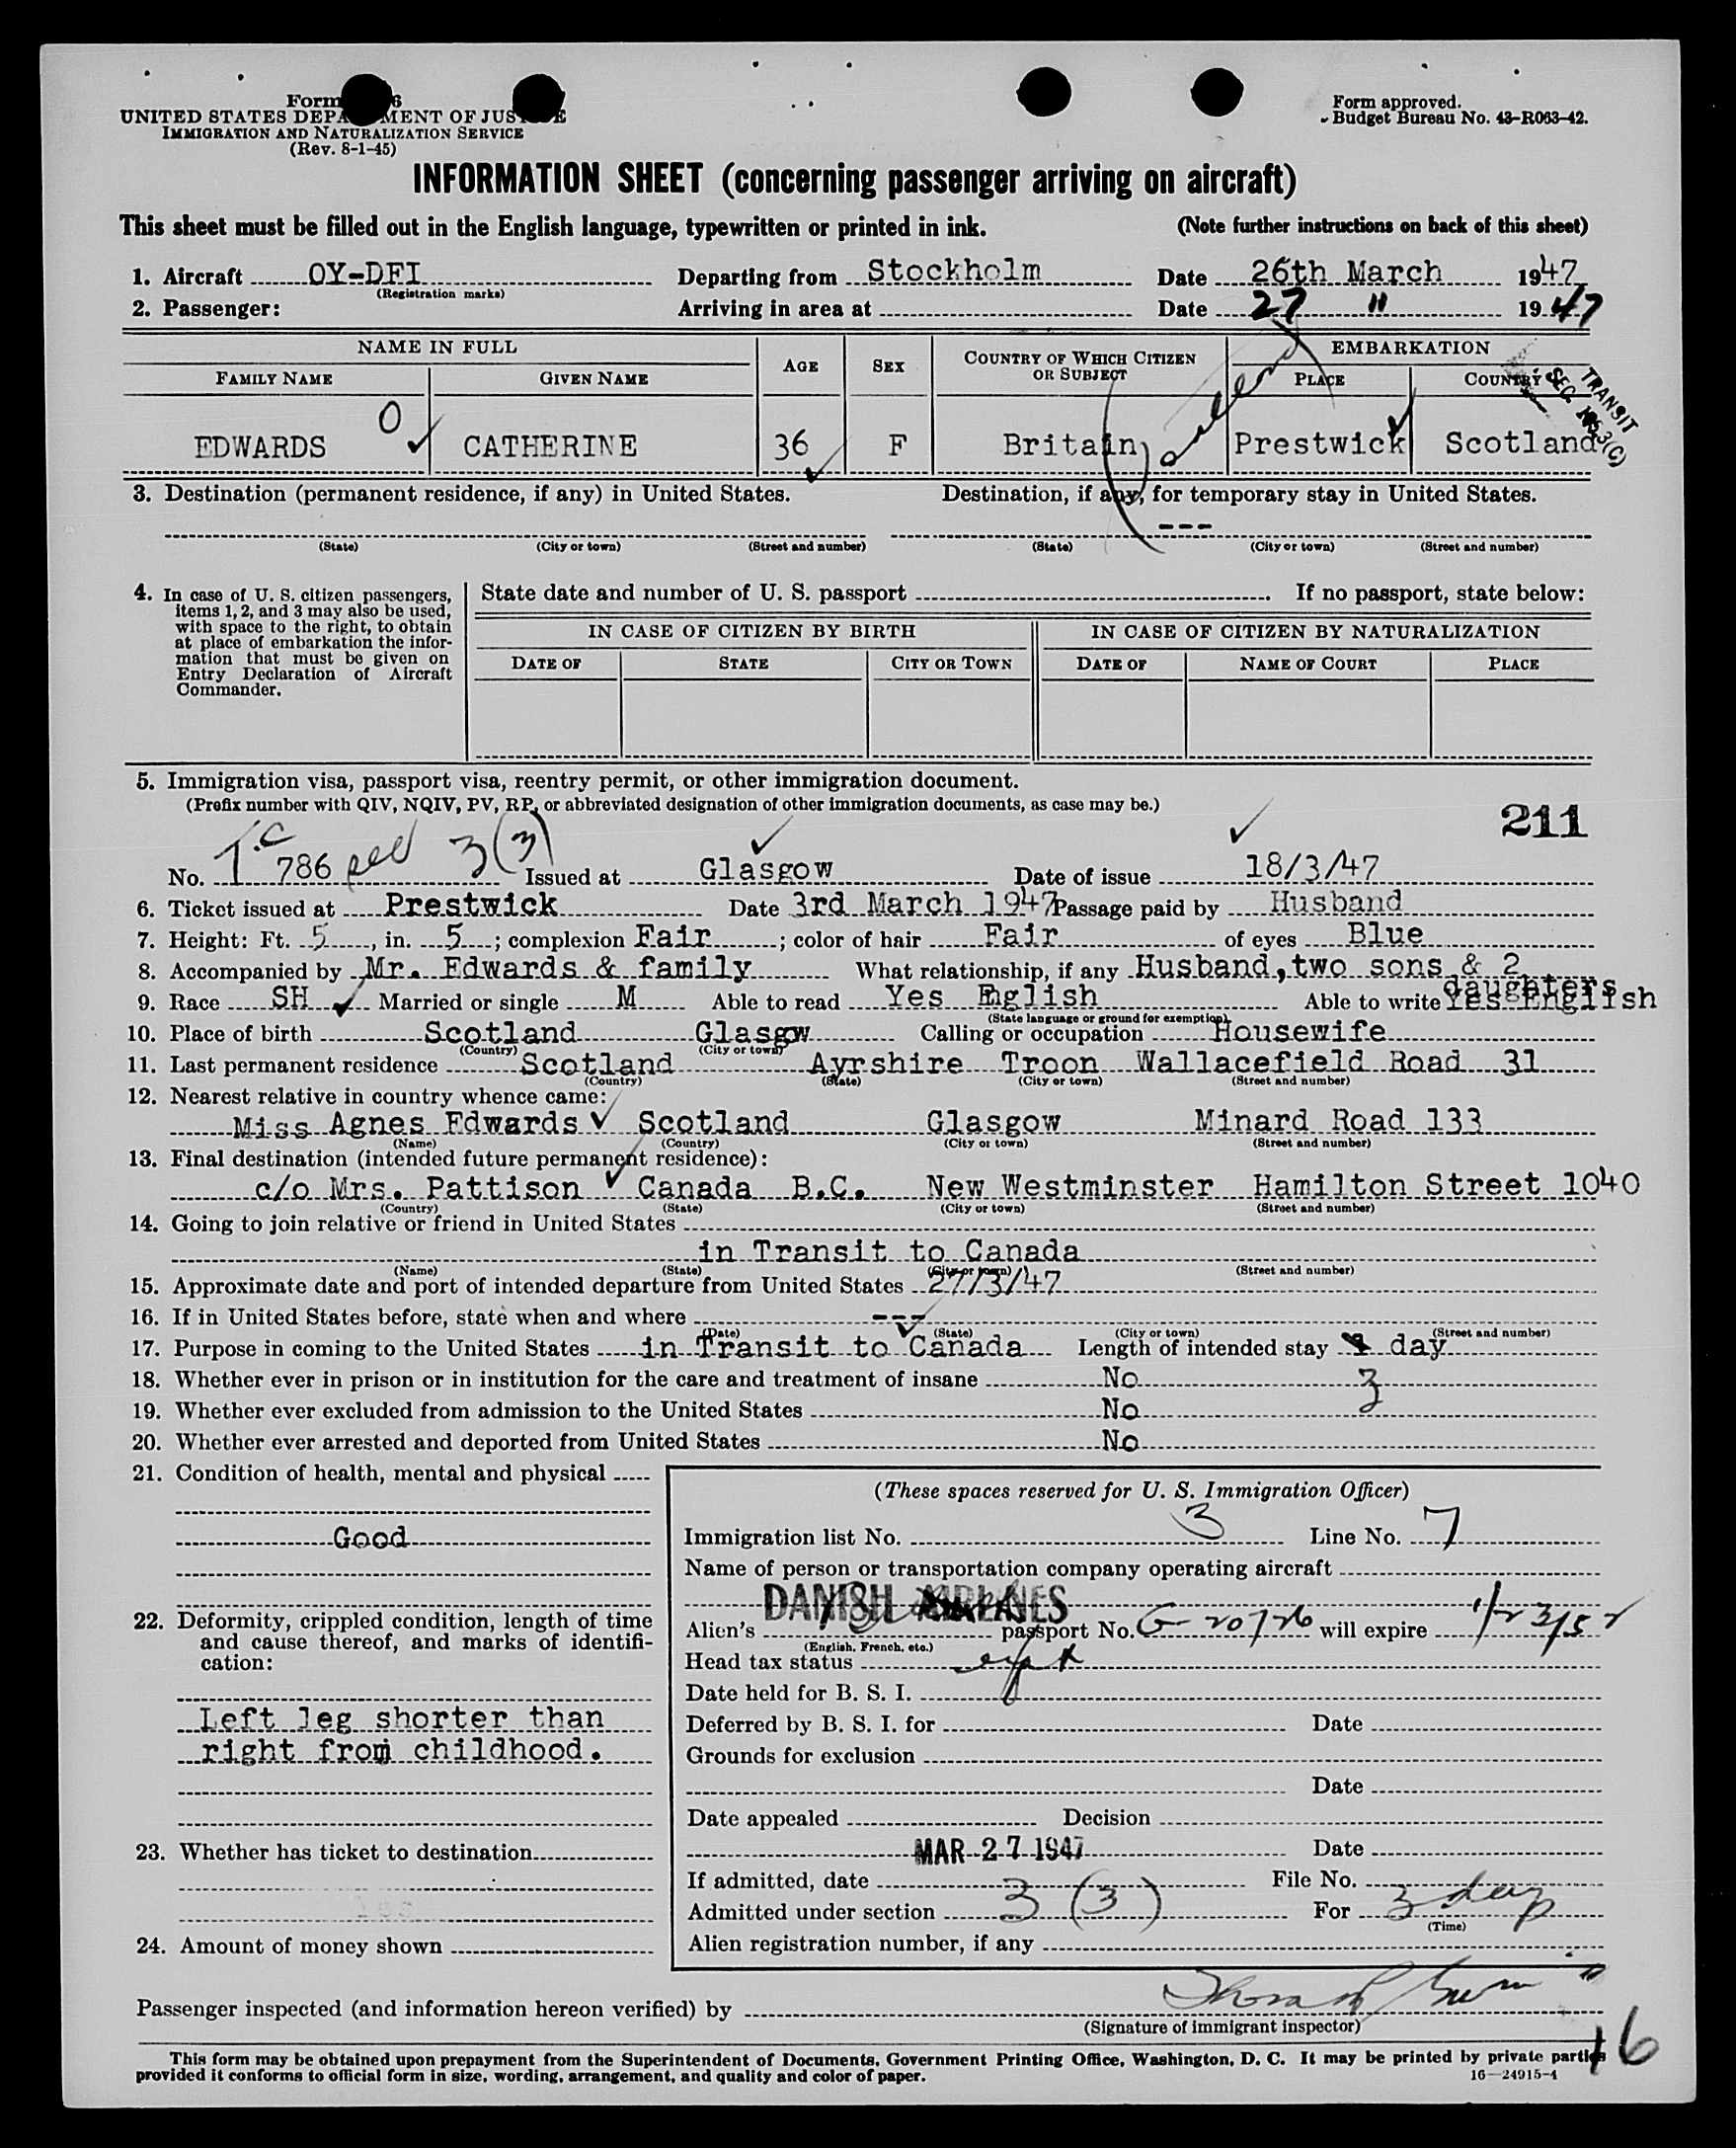 Form 6
UNITED STATES DEPARTMENT OF JUSTICE
IMMIGRATION AND NATURALIZATION SERVICE
(Rev. 8-1-45)
Form approved.
Budget Bureau No. 43-R063-42.
INFORMATION SHEET (concerning passenger arriving on aircraft)
This sheet must be filled out in the English language, typewritten or printed in ink. (Note further instructions on back of this sheet)
1. Aircraft OY-DFI Departing from Stockholm Date 26th March 1947
(Registration marks)
2. Passenger: Arriving in area at Date 27 " 1947
NAME IN FULL AGE SEX COUNTRY OF WHICH CITIZEN OR SUBJECT EMBARKATION
FAMILY NAME GIVEN NAME PLACE COUNTRY
TRANSIT
EDWARDS 0 CATHERINE 36 F Britain Prestwick Scotland
3. Destination (permanent residence, if any) in United States. Destination, if any, for temporary stay in United States.
---
(State) (City or town) (Street and number) (State) (City or town) (Street and number)
4. In case of U. S. citizen passengers, items 1, 2, and 3 may also be used, with space to the right, to obtain at place of embarkation the information that must be given on Entry Declaration of Aircraft Commander.
State date and number of U. S. passport If no passport, state below:
IN CASE OF CITIZEN BY BIRTH IN CASE OF CITIZEN BY NATURALIZATION
DATE OF STATE CITY OR TOWN DATE OF NAME OF COURT PLACE
5. Immigration visa, passport visa, reentry permit, or other immigration document.
(Prefix number with QIV, NQIV, PV, RP, or abbreviated designation of other immigration documents, as case may be.)
211
No. T.C 786 3(3) Issued at Glasgow Date of issue 18/3/47
6. Ticket issued at Prestwick Date 3rd March 1947 Passage paid by Husband
7. Height: Ft. 5, in. 5; complexion Fair; color of hair Fair of eyes Blue
8. Accompanied by Mr. Edwards & family What relationship, if any Husband, two sons & 2 daughters
9. Race SH Married or single M Able to read Yes English Able to write Yes English
(State language or ground for exemption)
10. Place of birth Scotland Glasgow Calling or occupation Housewife
(Country) (City or town)
11. Last permanent residence Scotland Ayrshire Troon Wallacefield Road 31
(Country) (State) (City or town) (Street and number)
12. Nearest relative in country whence came:
Miss Agnes Edwards Scotland Glasgow Minard Road 133
(Name) (Country) (City or town) (Street and number)
13. Final destination (intended future permanent residence):
c/o Mrs. Pattison Canada B.C. New Westminster Hamilton Street 1040
(Country) (State) (City or town) (Street and number)
14. Going to join relative or friend in United States
in Transit to Canada
(Name) (State) (City or town) (Street and number)
15. Approximate date and port of intended departure from United States 27/3/47
16. If in United States before, state when and where ---
(Date) (State) (City or town) (Street and number)
17. Purpose in coming to the United States in Transit to Canada Length of intended stay day
3
18. Whether ever in prison or in institution for the care and treatment of insane No
19. Whether ever excluded from admission to the United States No
20. Whether ever arrested and deported from United States No
21. Condition of health, mental and physical
Good
22. Deformity, crippled condition, length of time and cause thereof, and marks of identification:
Left leg shorter than
right from childhood.
23. Whether has ticket to destination
24. Amount of money shown
(These spaces reserved for U. S. Immigration Officer)
Immigration list No. 3 Line No. 7
Name of person or transportation company operating aircraft
DANISH AIRLINES
Alien's passport No. G-20726 will expire
(English, French, etc.)
Head tax status
Date held for B. S. I.
Deferred by B. S. I. for Date
Grounds for exclusion
Date
Date appealed Decision
MAR 27 1947 Date
If admitted, date File No.
Admitted under section 3 (3) For 3 days
(Time)
Alien registration number, if any
Passenger inspected (and information hereon verified) by
(Signature of immigrant inspector)
16
This form may be obtained upon prepayment from the Superintendent of Documents, Government Printing Office, Washington, D. C. It may be printed by private parties
provided it conforms to official form in size, wording, arrangement, and quality and color of paper.
16—24915-4